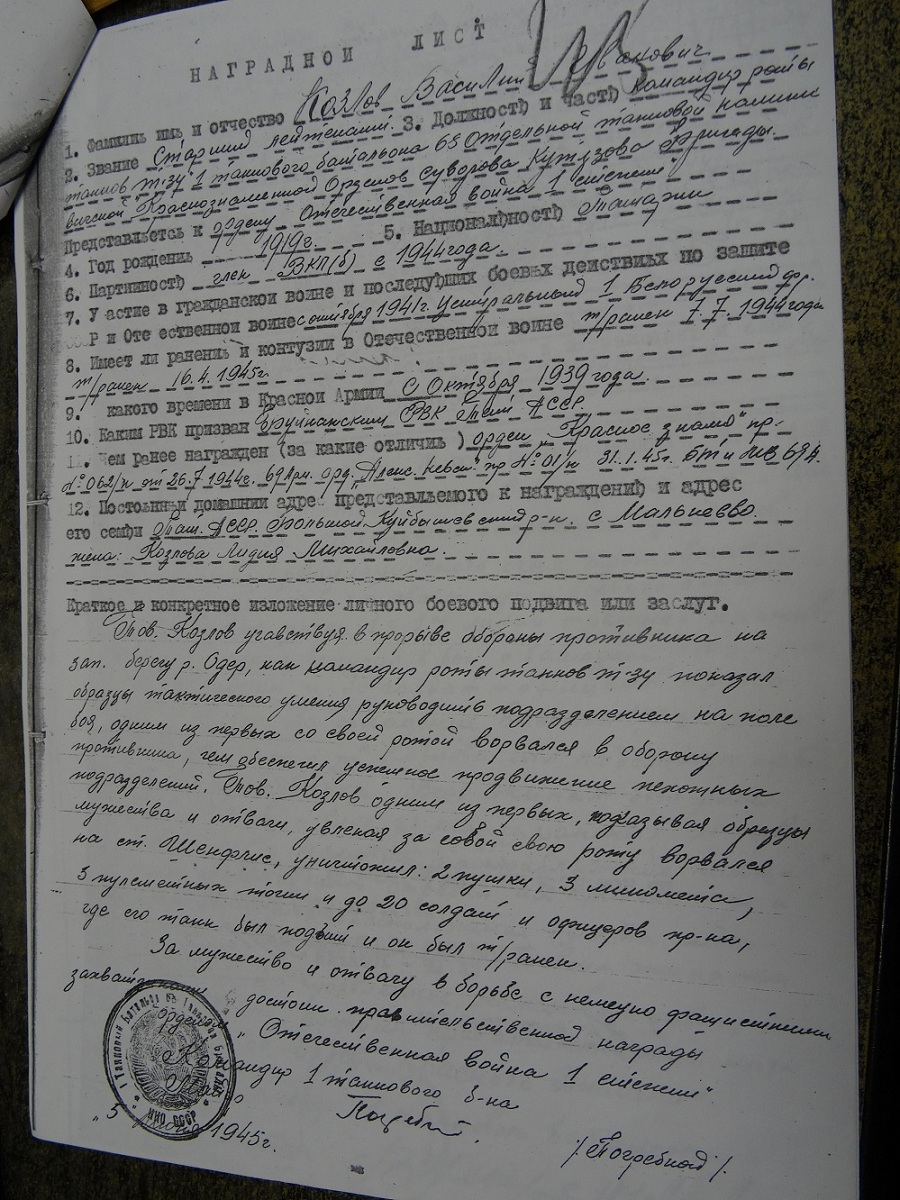 НАГРАДНОЙ ЛИСТ
1. Фамиль имь и отчество Козлов Василий Иванович
2. Звание Старший лейтенант. 3. Должность и часть командир роты
танков Т-34 1 танкового батальона 65 Отдельной танковой
Краснознаменной Орденов Суворова Кутузова Бригады.
Представльетсь к ордену Отечественная война 1 степени
4. Год рождень 1919г. 5. Национальность Татарин
6. Партийность член ВКП(б) с 1944 года.
7. У астие в гражданской воине и последующих боевах действиьх по защите
Р и Оте ественной воине с 1941г. Центральный 1 Белорусский фр.
8. Имеет ли ранень и контузии в Отечественной воине т/ранен 7.7.1944 года
т/ранен 16.4.1945г.
9. какого времени в Красной Армии С Октября 1939 года.
10. Каким РВК призван РВК Тат АССР.
11. Чем ранее награжден (за какие отличиь ) орден „Красное знамя" пр-
№ 062/н от 26.7.1944г. 69 Арм. орд. „Алекс. Невск." пр № 01/н 31.1.45г. БТ и МВ 69 А.
12. Постоьнный домашний адрес представльемого к награждению и адрес
его семьи Тат. АССР. Куйбышевский р-н. с
жена: Козлова Лидия Михайловна.
Краткое и конкретное изложение личного боевого подвига или заслуг.
Тов. Козлов участвуя в прорыве обороны противника на
зап. берегу р. Одер, как командир роты танков Т-34 показал
образцы тактического умения руководить подразделением на поле
боя, одним из первых со своей ротой ворвался в оборону
противника, чем обеспечил успешное продвижение пехотных
подразделений. Тов. Козлов одним из первых, показывая образцы
мужества и отваги, увлекая за собой свою роту ворвался
на ст. Шенфлис, уничтожил: 2 пушки, 3 миномета,
3 пулеметных точки и до 20 солдат и офицеров пр-ка,
где его танк был подбит и он был т/ранен.
За мужество и отвагу в борьбе с немецко фашистскими
захватчиками достоин правительственной награды
орден „Отечественная война 1 степени"
Командир 1 танкового б-на
/Погребной/.
„5 1945г.
НКО СССР